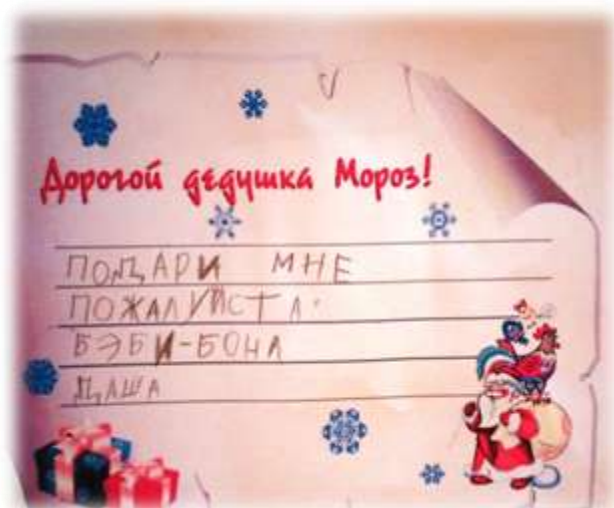 Дорогой дедушка Мороз!
ПОДАРИ МНЕ
ПОЖАЛУЙСТА:
БЭБИ-БОНА
ДАША